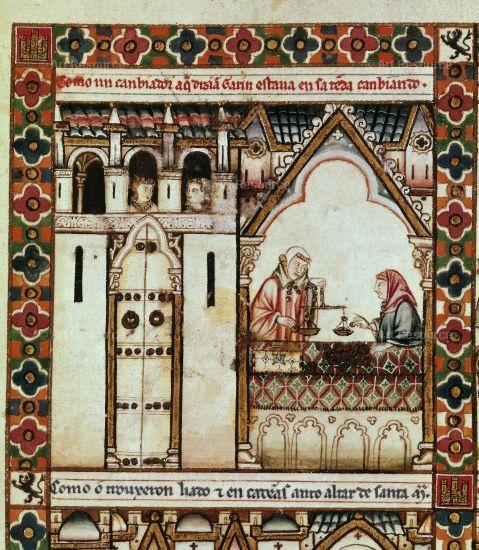 Como un canbiador aq̃ diziã Garin estava en sa tẽda canbiando.
Como o trouxeron liado ⁊ en cadeas ante o altar de santa Mª.